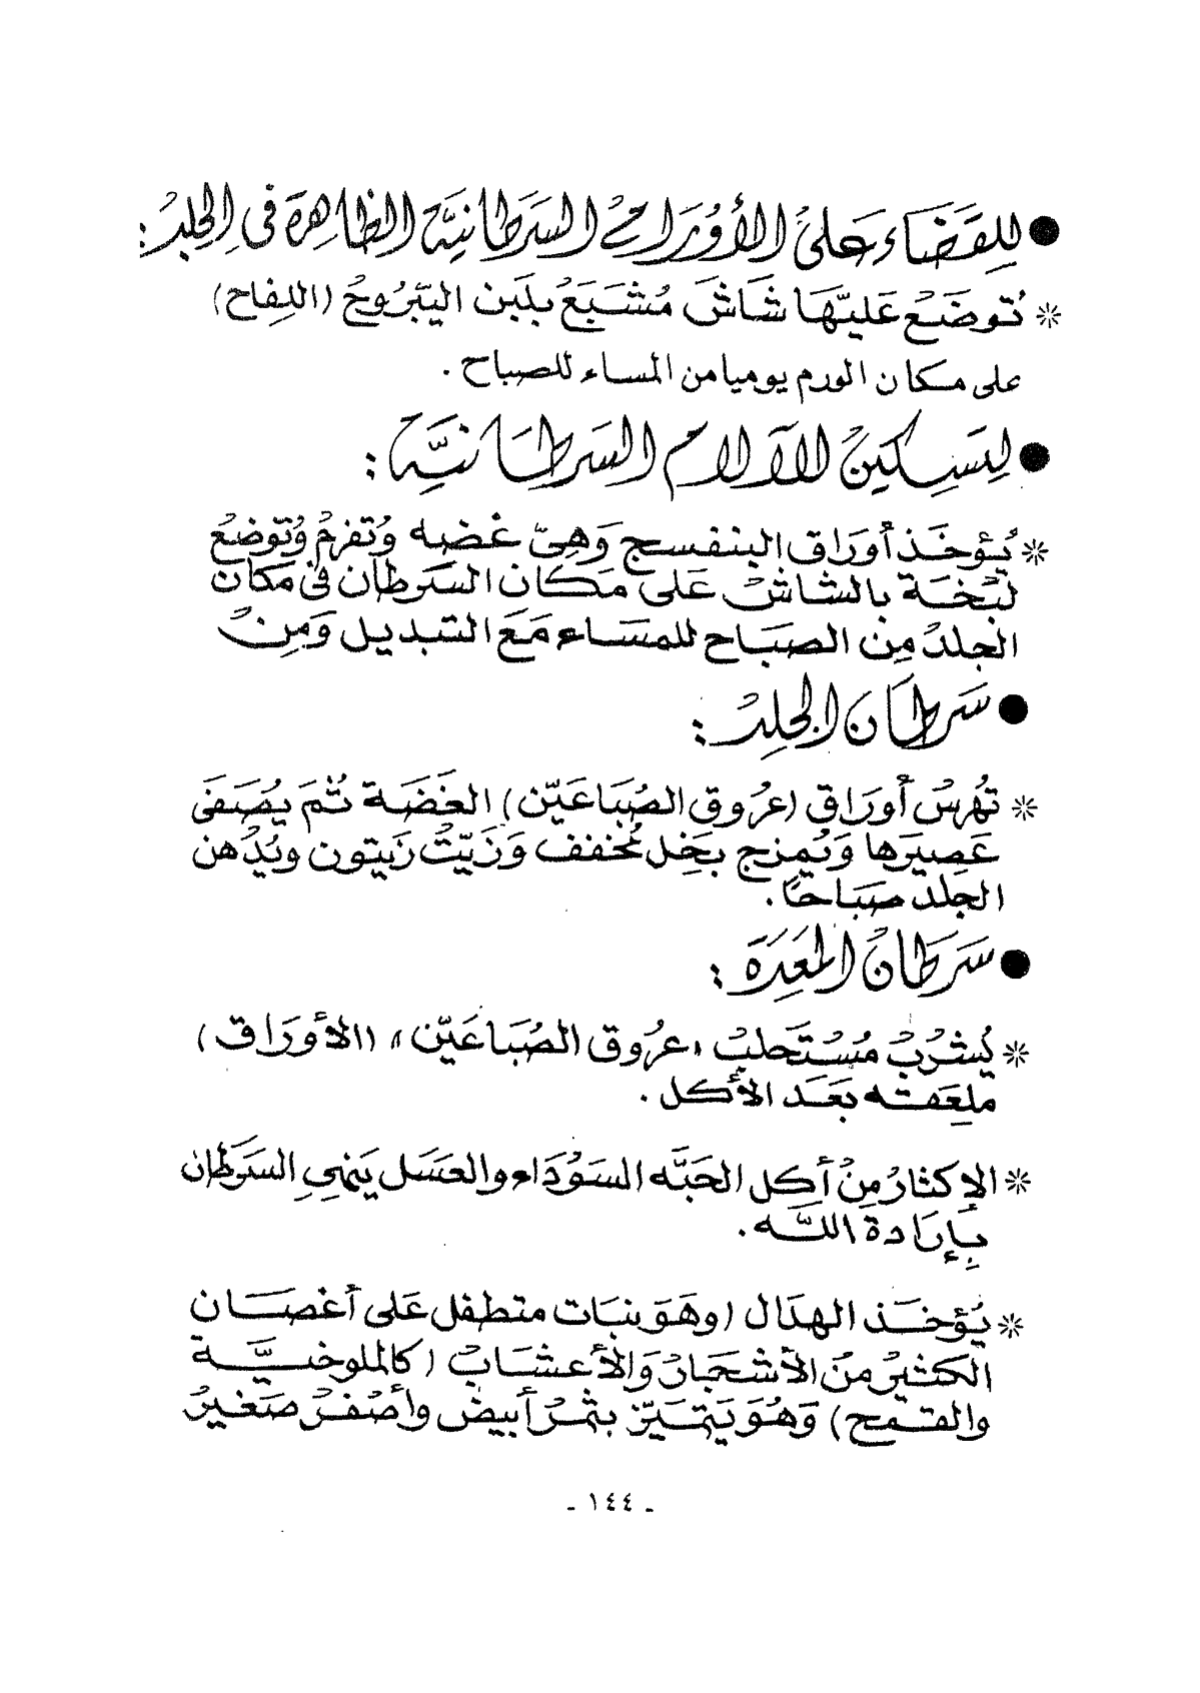 ● للقَضَاء عَلىْ الأوُرَامِ السَرَطانيَّة الظاهِرَة فى الجِلدْ :
* تُوضَعْ عَليّهَا شَاشَ مُشَبَعْ بلَبَن اليَبّرُوحُ (اللفاح)
على مكان الورم يوميا من المساء للصباح .
● لِتَسكِينْ الآلام السَرطَانيَّة :
* يُؤخَذ أورَاق البنفسج وَهِىّ غضبه وُتفرمُ وُتوضعُ
لبْخَة بالشاشْ عَلى مَكان السَرطان فىْ مَكان
الجلدُ مِن الصبَاح للمسَاء مَعَ التبديل وَمِنْ
● سَرطان الجِلدْ :
* تهُرسُ أورَاق (عرُوق الصُبَاعَيّن) الغَضَة ثُمَ يُصَفَى
عَصيَرها وَيُمزج بخَل مُخفف وَزَيّتْ زَيتون ويُدُهن
الجلد صَبَاحًا .
● سَرَطانُ المَعِدَة :
* يُشرُبْ مُسْتَحلبْ «عرُوق الصُبَاعَيّن» (الأورَاق)
ملعَقته بَعَد الأكل .
* الإكثارُ مِنْ أكل الحَبَّه السَوُدَاء والعَسَل يَنهىِ السَرَطان
بِإرَادة اللَّه .
* يُؤخَذ الهدَال (وهَوَ نبَات متطفل عَلى أغصَان
الكثيرْ مِنَ الأشجَارْ وَالأعشَابْ (كالملوخيَّة
والقمح) وَهُوَ يَتميَزّ بثمرْ أبيضْ وأصْفرْ صَغيرْ
- ١٤٤ -